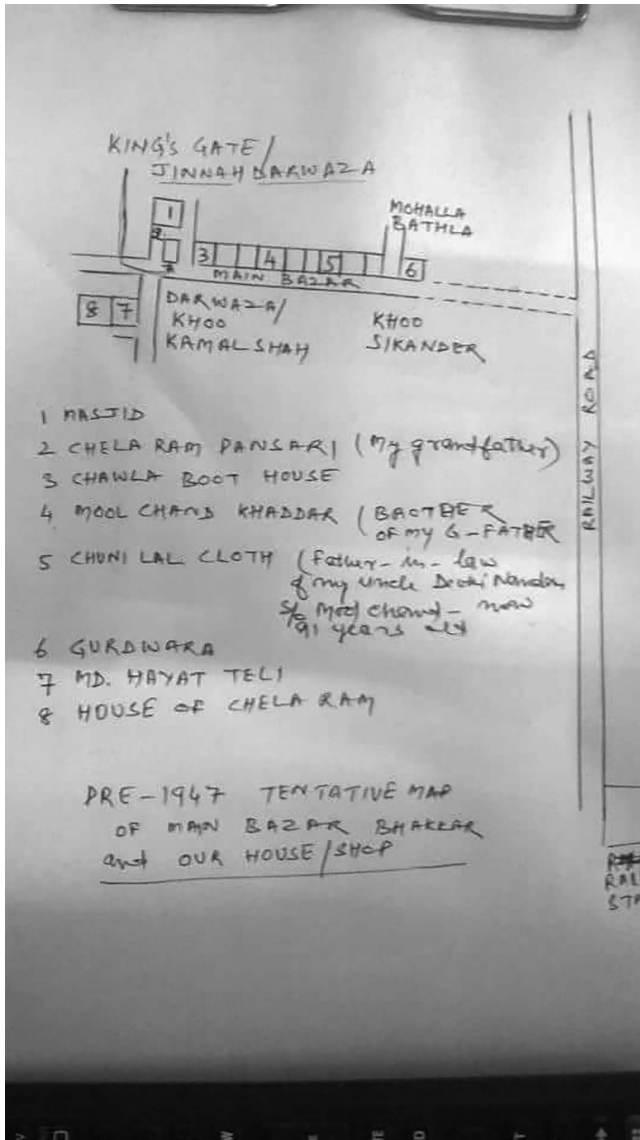 KING'S GATE/
JINNAH DARWAZA
1
2
MOHALLA
BATHLA
3
4
5
6
MAIN BAZAR
8
7
DARWAZA/
KHOO
KAMAL SHAH
KHOO
SIKANDER
RAILWAY ROAD
1 MASJID
2 CHELA RAM PANSARI (My grandfather)
3 CHAWLA BOOT HOUSE
4 MOOL CHAND KHADDAR (BROTHER
OF MY G-FATHER
5 CHUNI LAL CLOTH (Father-in-law
of my uncle
S/o Mool Chand - now
91 years old
6 GURDWARA
7 MD. HAYAT TELI
8 HOUSE OF CHELA RAM
PRE-1947 TENTATIVE MAP
OF MAIN BAZAR BHAKKAR
and OUR HOUSE/SHOP